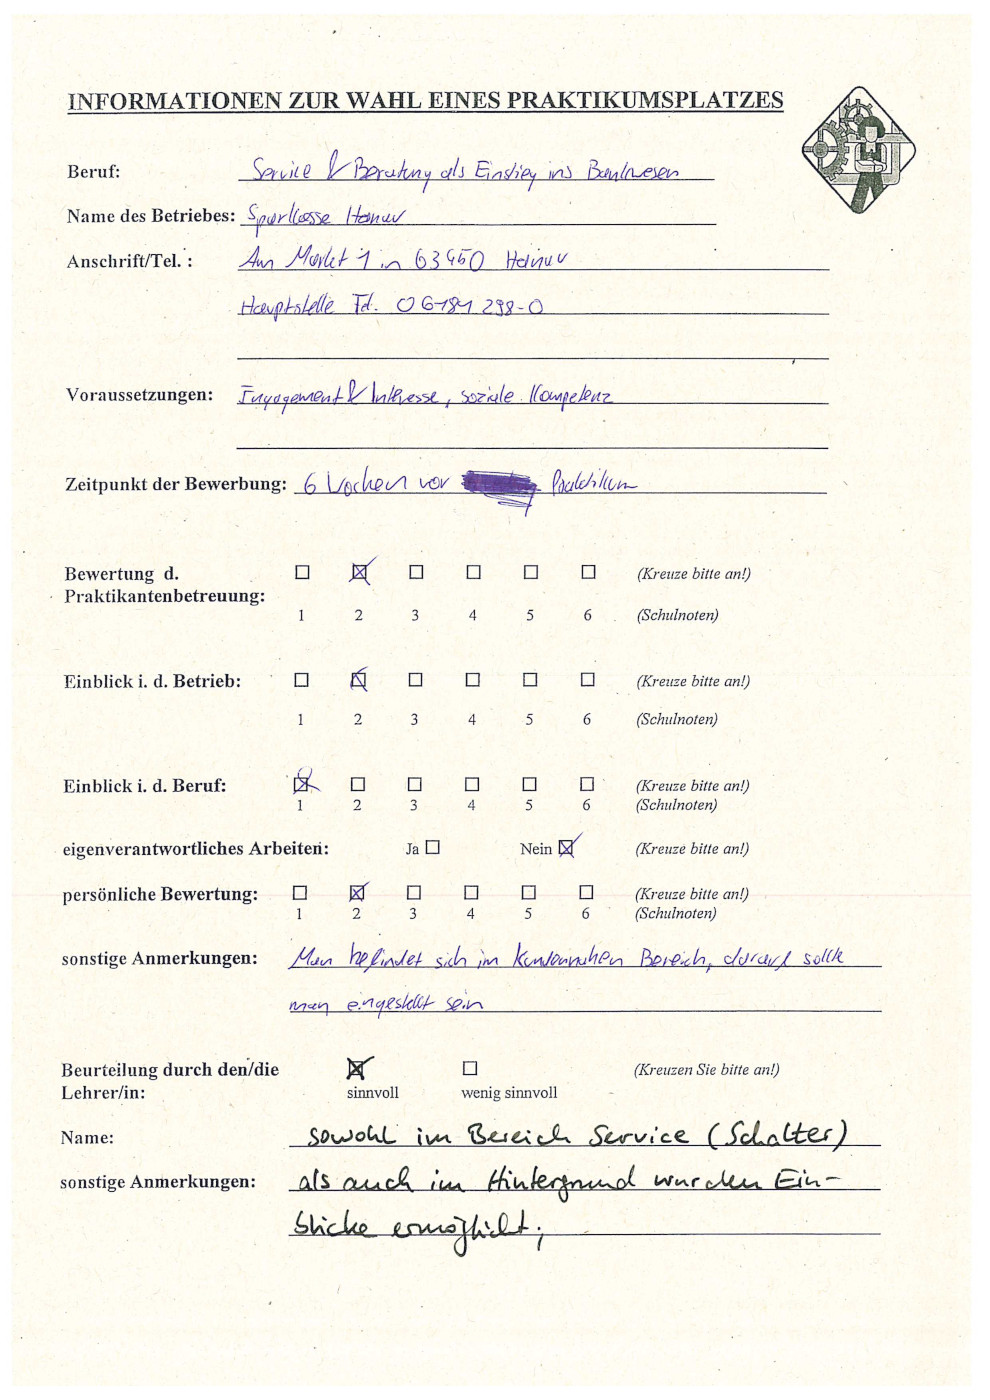 INFORMATIONEN ZUR WAHL EINES PRAKTIKUMSPLATZES
Beruf: Service & Beratung als Einstieg ins Bankwesen
Name des Betriebes: Sparkasse Hanau
Anschrift/Tel. : Am Markt 1 in 63450 Hanau
Hauptstelle Tel. 06181 298-0
Voraussetzungen: Engagement & Interesse, soziale Kompetenz
Zeitpunkt der Bewerbung: 6 Wochen vor Praktikum
Bewertung d. (Kreuze bitte an!)
Praktikantenbetreuung:
1 2 3 4 5 6 (Schulnoten)
Einblick i. d. Betrieb: (Kreuze bitte an!)
1 2 3 4 5 6 (Schulnoten)
Einblick i. d. Beruf: (Kreuze bitte an!)
1 2 3 4 5 6 (Schulnoten)
eigenverantwortliches Arbeiten: Ja Nein (Kreuze bitte an!)
persönliche Bewertung: (Kreuze bitte an!)
1 2 3 4 5 6 (Schulnoten)
sonstige Anmerkungen: Man befindet sich im kundennahen Bereich, darauf sollte
man eingestellt sein
Beurteilung durch den/die (Kreuzen Sie bitte an!)
Lehrer/in: sinnvoll wenig sinnvoll
Name: sowohl im Bereich Service (Schalter)
sonstige Anmerkungen: als auch im Hintergrund wurden Ein-
blicke ermöglicht;